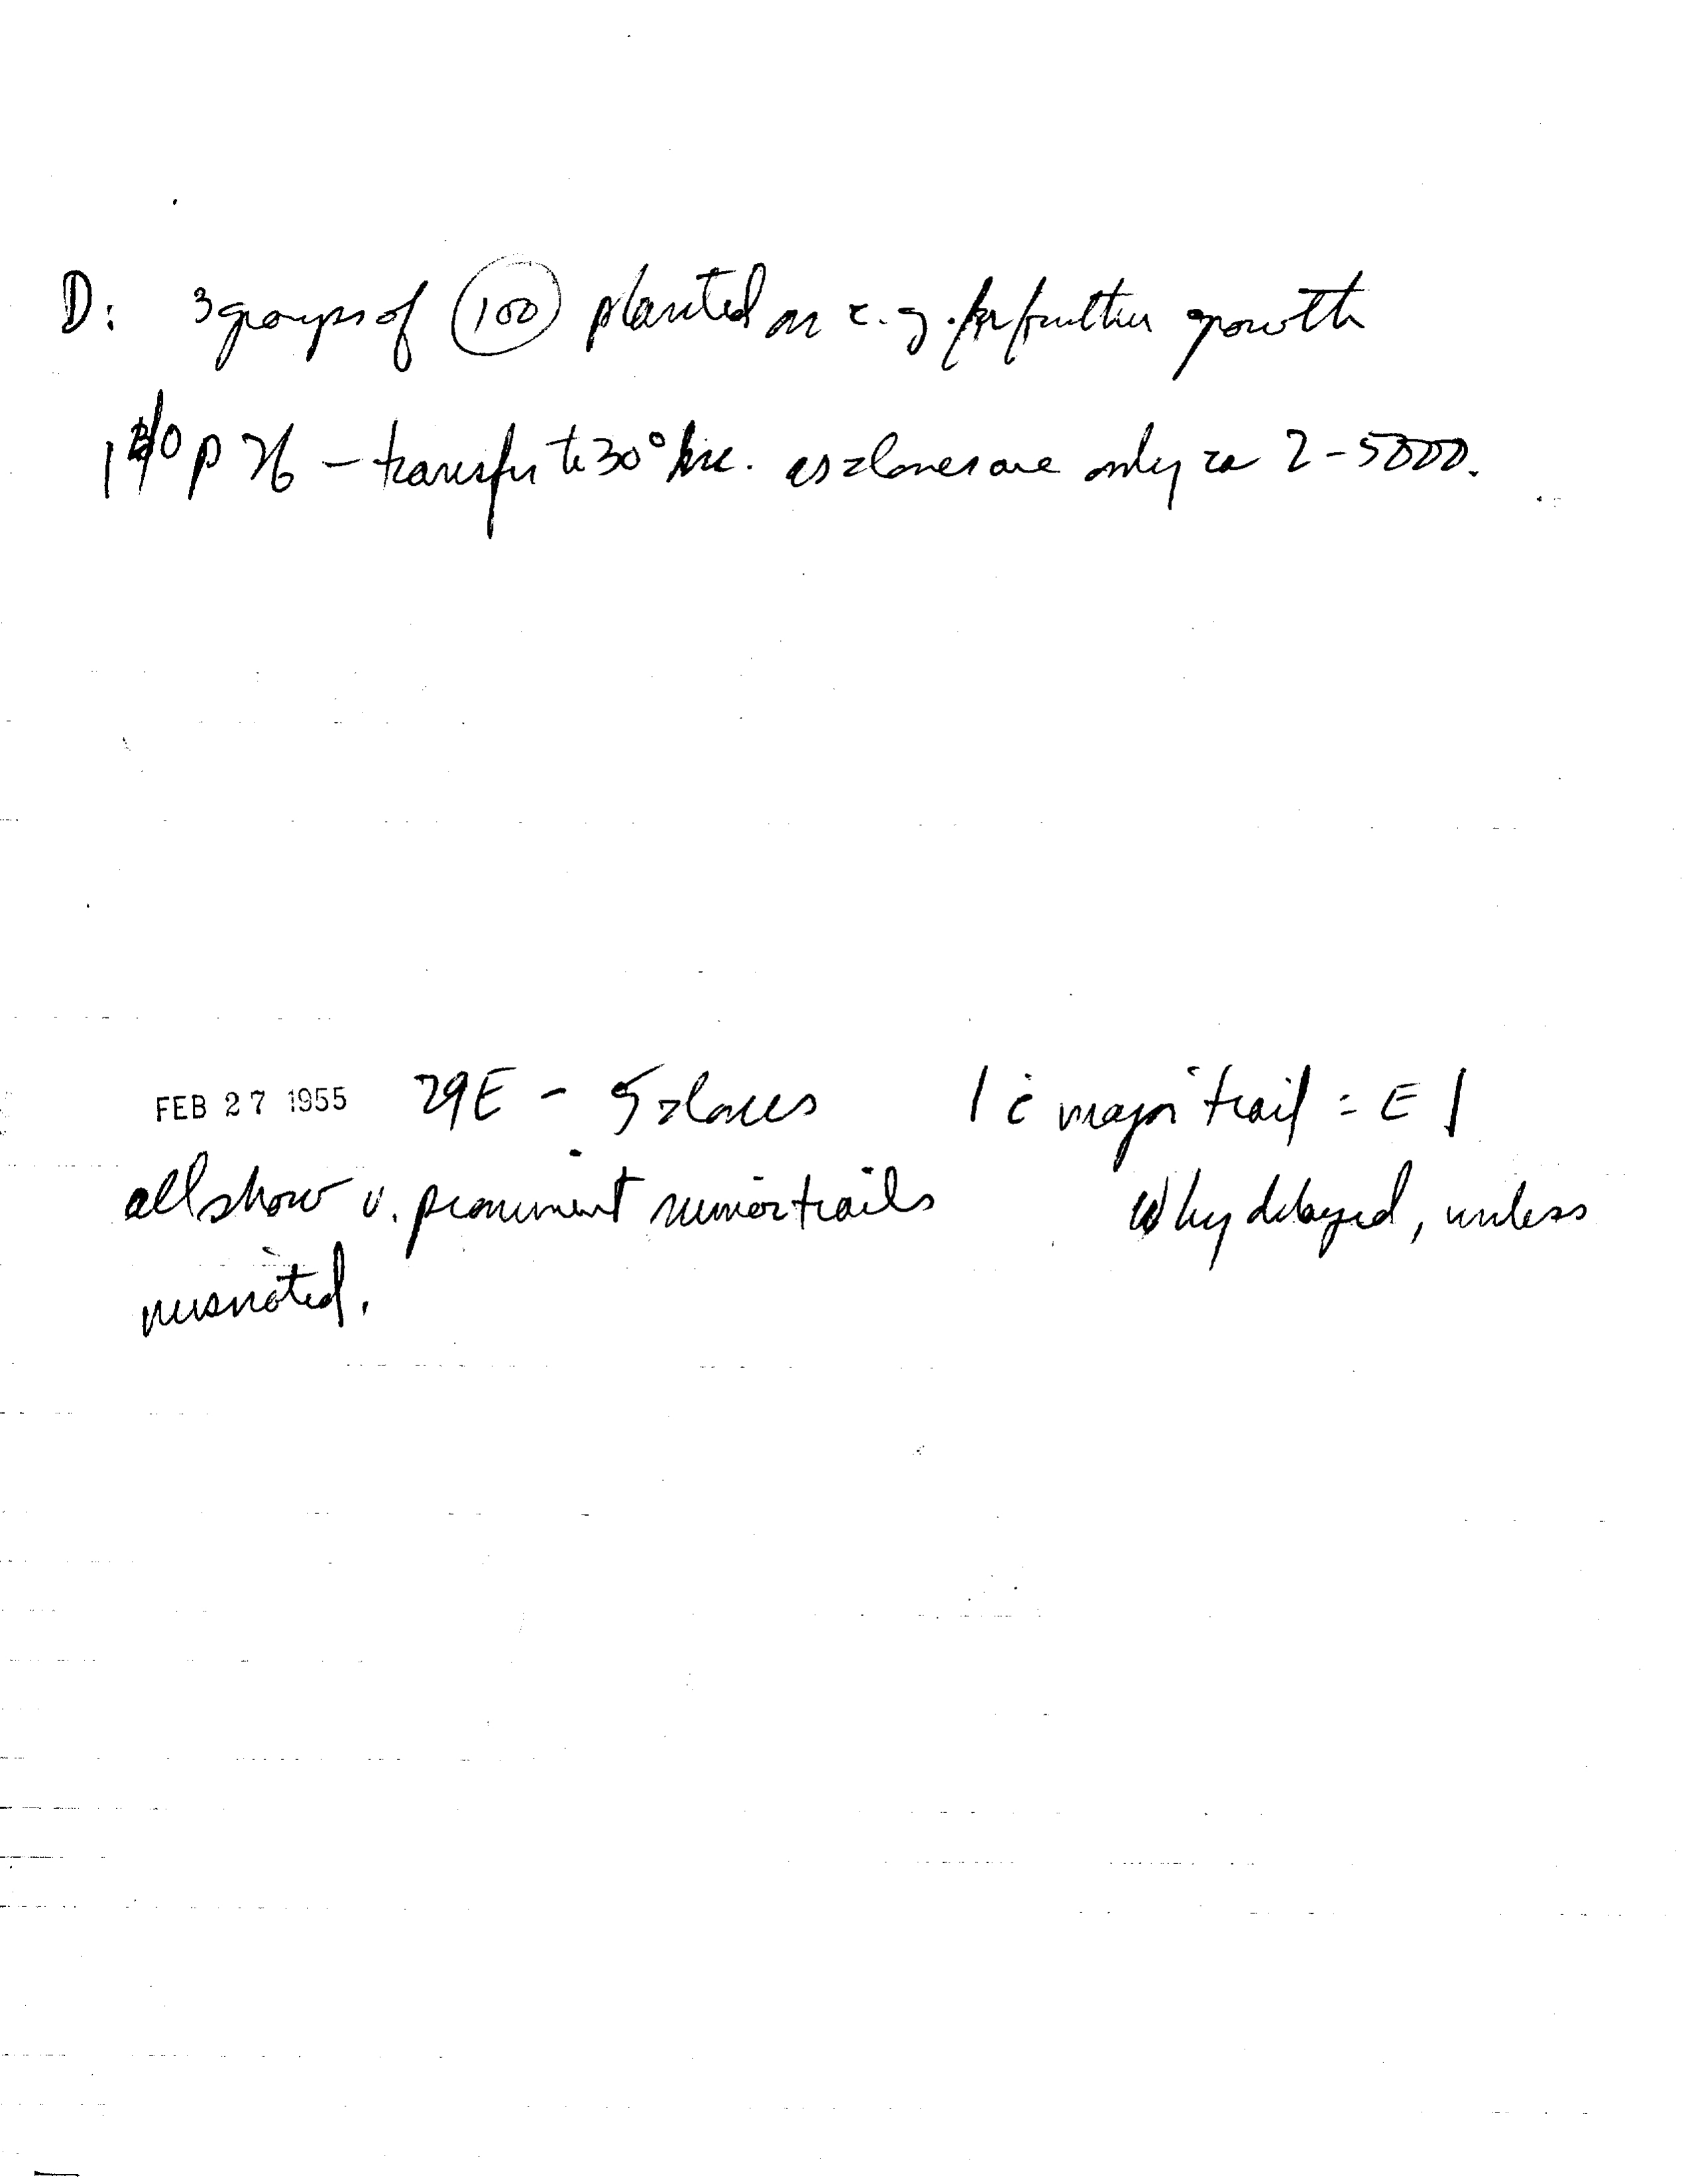 D: 3 groups of (100) planted on c.g. for further growth
P 26 – transfer to 30° inc. as clones are only ca 2-5000.
FEB 27 1955 29E – 5 clones 1 c̄ major trail = E1
all show v. prominent minor trails Why delayed, unless
misnoted.